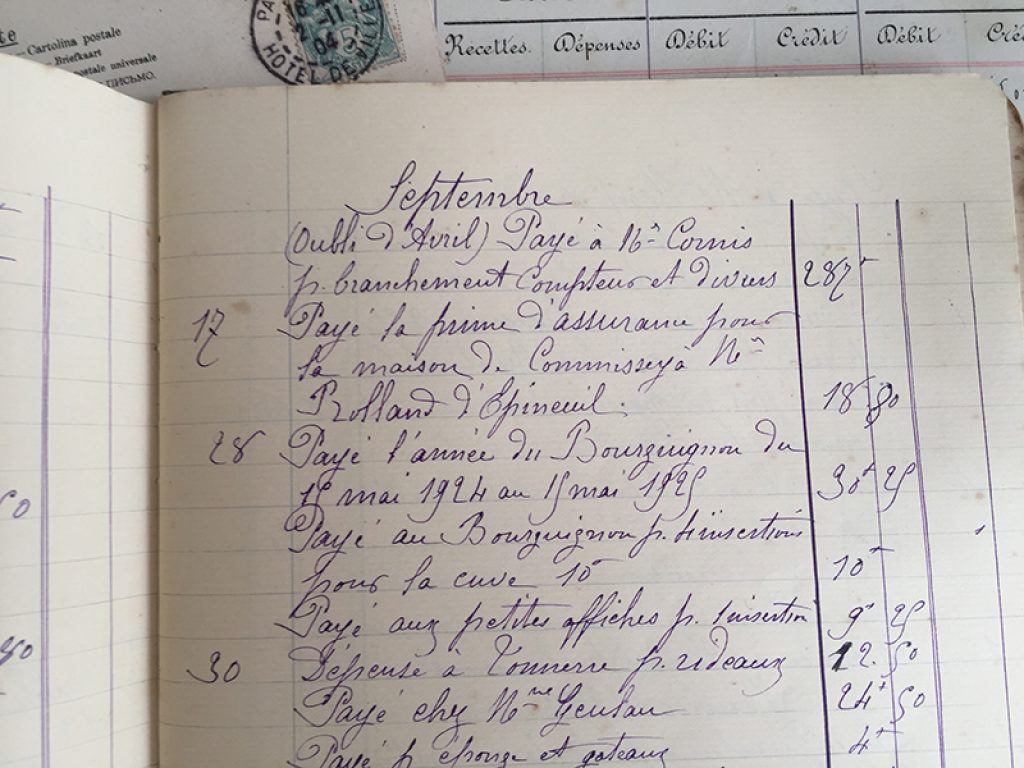 te
Cartolina postale
Briefkaart
postale universelle
ПИСЬМО.
PA
2 -11
04
HOTEL DE VILLE
5
Recettes. Dépenses Débit Crédit Débit Cré
Septembre
(Oubli d'Avril) Payé à Mr Cornis
p. branchement Compteur et divers 287
17 Payé la prime d'assurance pour
la maison de Commissey à Mr
Rolland d'Epineuil. 18 80
28 Payé l'année du Bourguignon du
15 mai 1924 au 15 mai 1925 30 25
Payé au Bourguignon p. 4 insertions
pour la cuve 10 10
Payé aux petites affiches p. 1 insertion 9 25
30 Dépense à Tonnerre p. rideaux 12. 50
Payé chez Mme 24 50
Payé p. éponge et gateaux 4
50
50